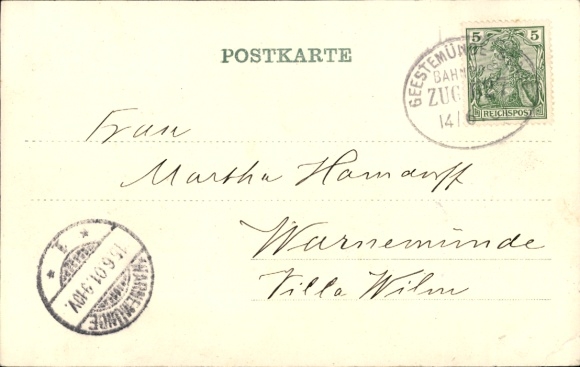 POSTKARTE
5 5
REICHSPOST
GEESTEMÜN
BAHN
ZUG
14/6
Frau
Martha Horndorff
Warnemünde
Villa Wilm
WARNEMÜNDE
15.6.01.9-10V.